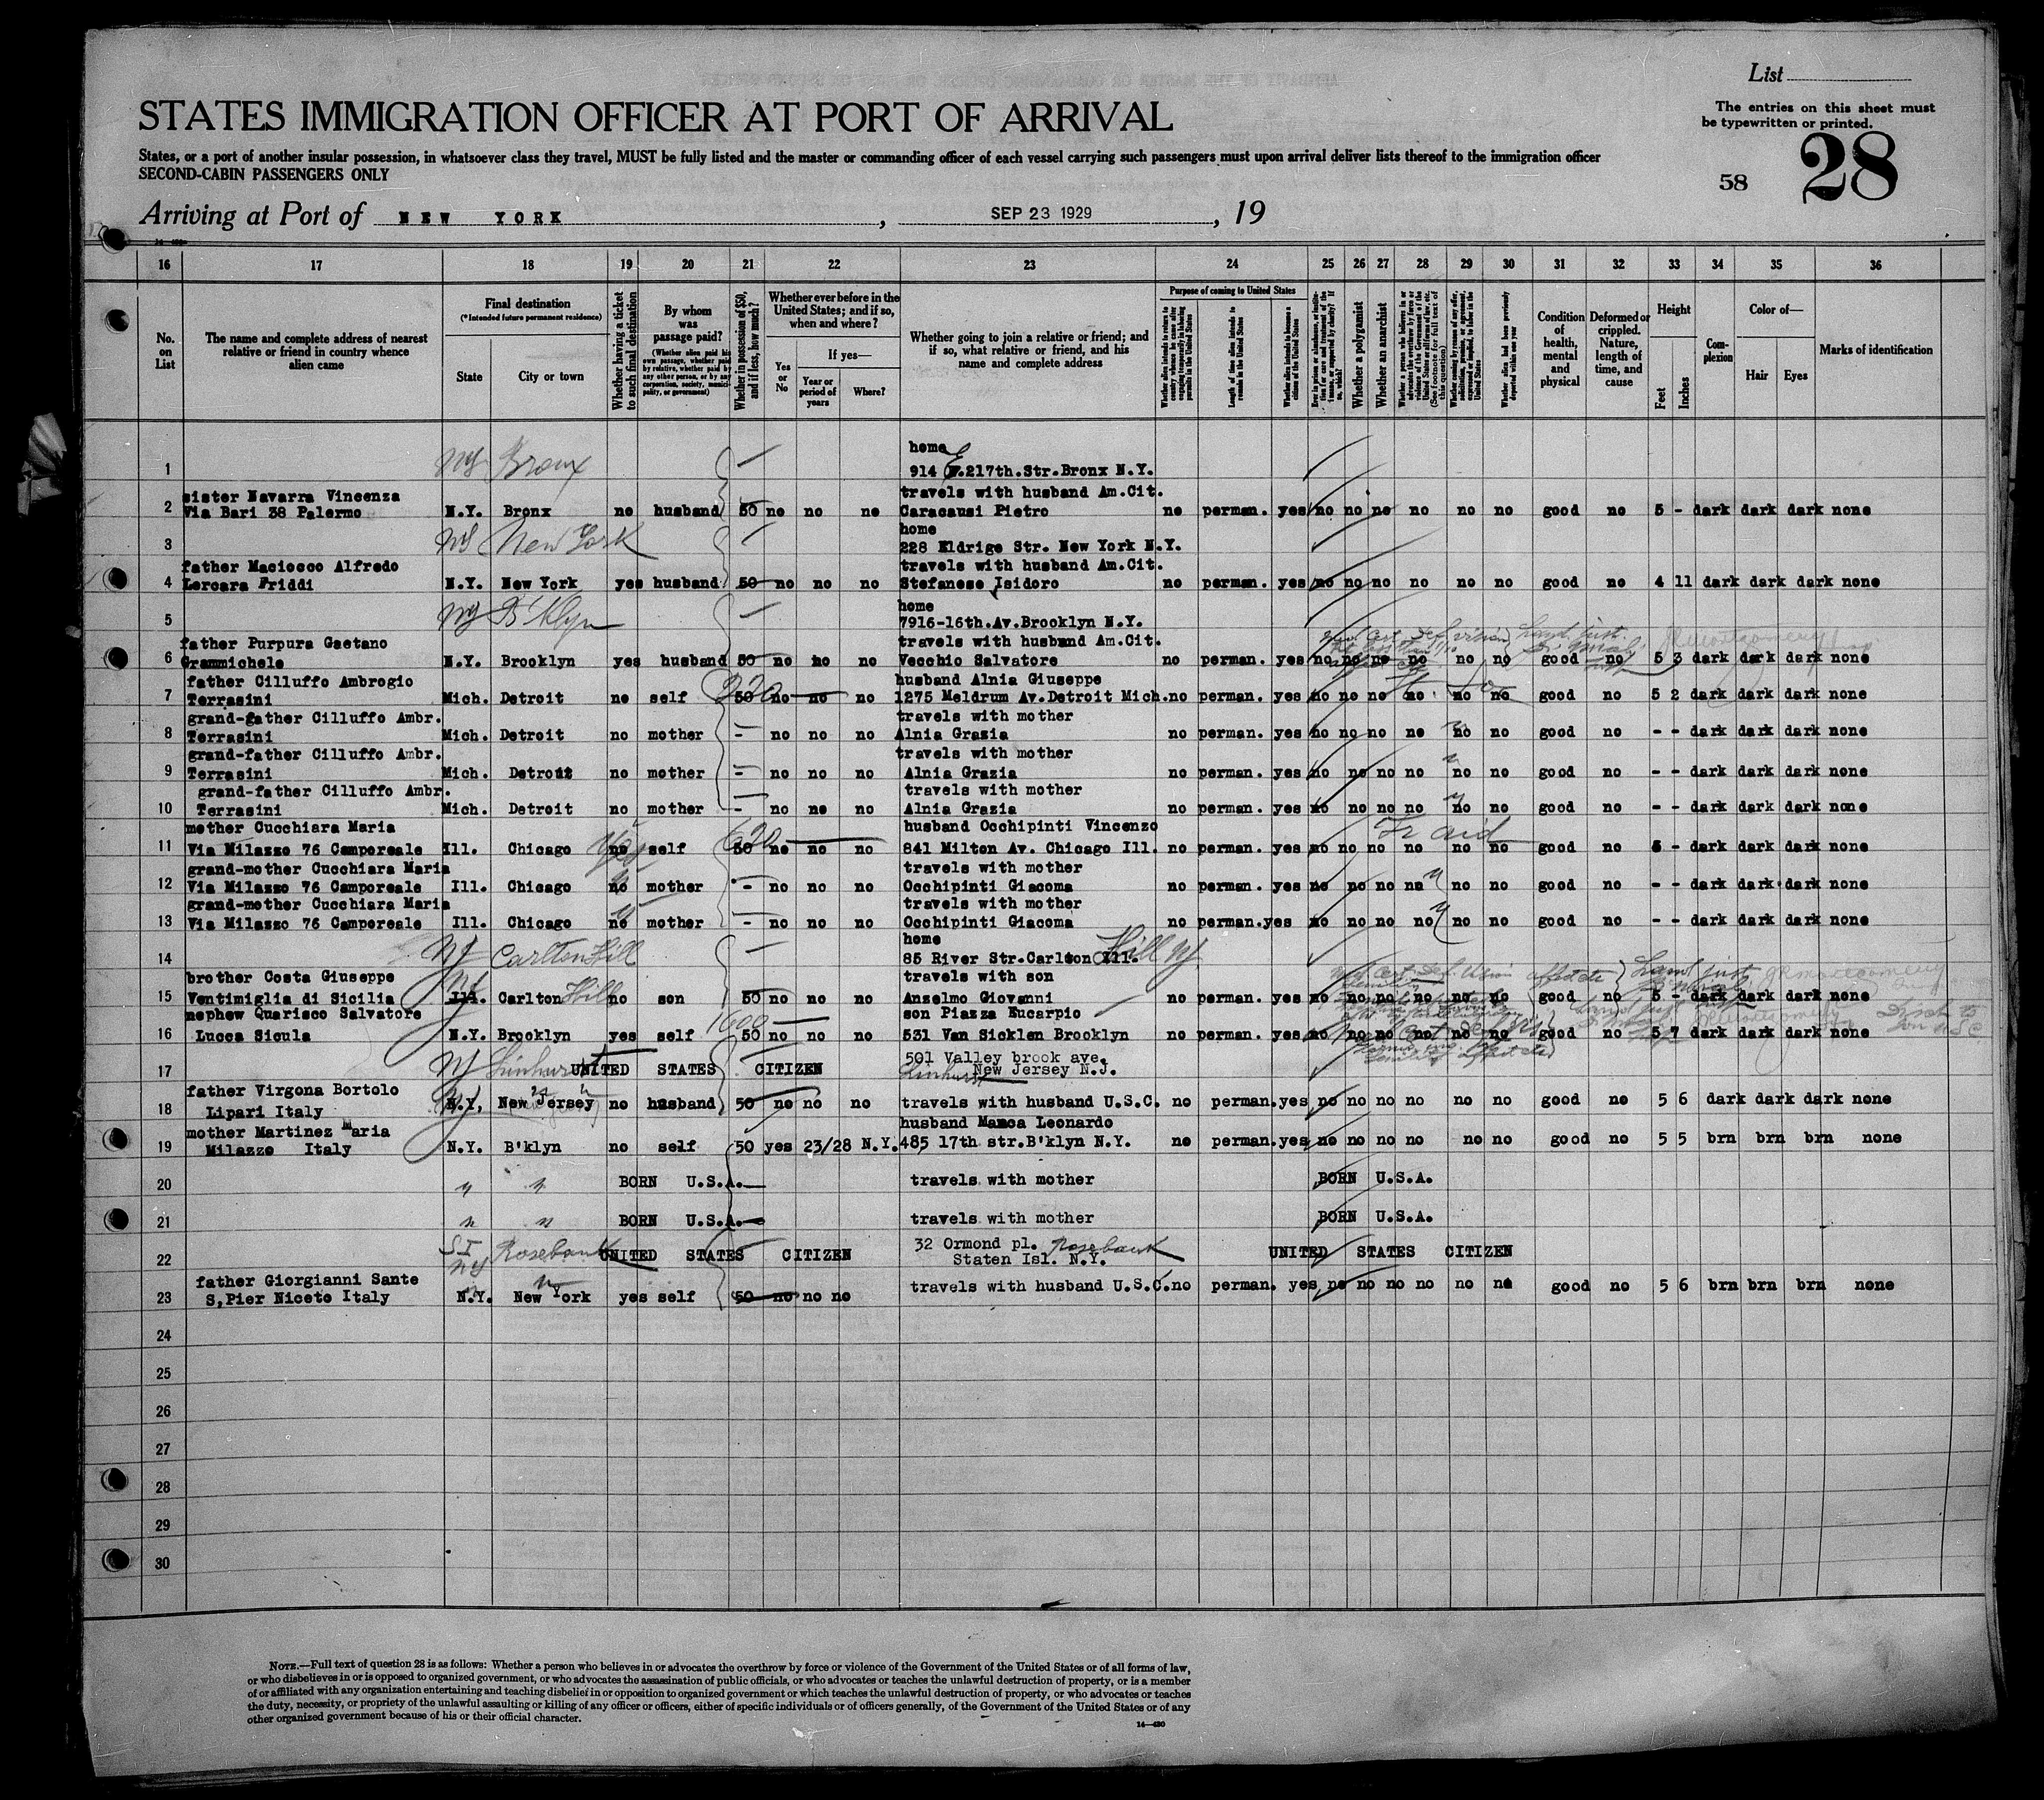 List
The entries on this sheet must
be typewritten or printed.
STATES IMMIGRATION OFFICER AT PORT OF ARRIVAL
28
58
States, or a port of another insular possession, in whatsoever class they travel, MUST be fully listed and the master or commanding officer of each vessel carrying such passengers must upon arrival deliver lists thereof to the immigration officer
SECOND-CABIN PASSENGERS ONLY
Arriving at Port of NEW YORK, SEP 23 1929, 19
16 17 18 19 20 21 22 23 24 25 26 27 28 29 30 31 32 33 34 35 36
No. on List
The name and complete address of nearest relative or friend in country whence alien came
Final destination
(*Intended future permanent residence)
State
City or town
Whether having a ticket to such final destination
By whom was passage paid?
(Whether alien paid his own passage, whether paid by relative, whether paid by any other person, or by any corporation, society, municipality, or government)
Whether in possession of $50, and if less, how much?
Whether ever before in the United States; and if so, when and where?
Yes or No
If yes—
Year or period of years
Where?
Whether going to join a relative or friend; and if so, what relative or friend, and his name and complete address
Purpose of coming to United States
Whether alien intends to return to country whence he came after engaging temporarily in laboring pursuits in the United States
Length of time alien intends to remain in the United States
Whether alien intends to become a citizen of the United States
Whether a polygamist
Whether an anarchist
Whether alien had been previously deported within one year
Condition of health, mental and physical
Deformed or crippled. Nature, length of time, and cause
Height
Feet
Inches
Complexion
Color of—
Hair
Eyes
Marks of identification
1 NY Bronx — home
914 E.217th.Str.Bronx N.Y.
sister Navarra Vincenza travels with husband Am.Cit.
2 Via Bari 38 Palermo N.Y. Bronx no husband 50 no no no Caracausi Pietro no perman. yes no no no no no no good no 5 - dark dark dark none
home
3 NY New York — 228 Eldrige Str. New York N.Y.
father Maciocco Alfredo travels with husband Am.Cit.
4 Lercara Friddi N.Y. New York yes husband 50 no no no Stefanese Isidoro no perman. yes no no no no no no good no 4 11 dark dark dark none
home
5 NY B'klyn — 7916-16th.Av.Brooklyn N.Y.
father Purpura Gaetano travels with husband Am.Cit.
6 Grammichele N.Y. Brooklyn yes husband 50 no no no Vecchio Salvatore no perman. yes no no no no no no good no 5 3 dark dark dark none
father Cilluffo Ambrogio husband Alnia Giuseppe
7 Terrasini Mich. Detroit no self 50 no no no 1275 Meldrum Av.Detroit Mich. no perman. yes no no no no no no good no 5 2 dark dark dark none
grand-father Cilluffo Ambr. travels with mother
8 Terrasini Mich. Detroit no mother - no no no Alnia Grazia no perman. yes no no no no no no good no - - dark dark dark none
grand-father Cilluffo Ambr. travels with mother
9 Terrasini Mich. Detroit no mother - no no no Alnia Grazia no perman. yes no no no no no no good no - - dark dark dark none
grand-father Cilluffo Ambr. travels with mother
10 Terrasini Mich. Detroit no mother - no no no Alnia Grazia no perman. yes no no no no no no good no - - dark dark dark none
mother Cucchiara Maria husband Occhipinti Vincenzo
11 Via Milazzo 76 Camporeale Ill. Chicago no yes self 50 no no no 841 Milton Av. Chicago Ill. no perman. yes no no no no no no good no 5 - dark dark dark none
grand-mother Cucchiara Maria travels with mother
12 Via Milazzo 76 Camporeale Ill. Chicago no mother - no no no Occhipinti Giacoma no perman. yes no no no no no no good no - - dark dark dark none
grand-mother Cucchiara Maria travels with mother
13 Via Milazzo 76 Camporeale Ill. Chicago no mother - no no no Occhipinti Giacoma no perman. yes no no no no no no good no - - dark dark dark none
home
14 NJ Carlton Hill — 85 River Str.Carlton Ill. Hill NJ
brother Costa Giuseppe travels with son
15 Ventimiglia di Sicilia Ill. NJ Carlton Hill no son 50 no no no Anselmo Giovanni no perman. yes no no no no no no good no 5 - dark dark dark none
nephew Quarisco Salvatore son Piazza Eucarpio
16 Lucca Sicula N.Y. Brooklyn yes self 1000 50 no no no 531 Van Sicklen Brooklyn no perman. yes no no no no no good no 5 7 dark dark dark none
501 Valley brook ave.
17 NJ Linhurst UNITED STATES CITIZEN Linhurst New Jersey N.J.
father Virgona Bortolo
18 Lipari Italy N.Y. New Jersey no husband 50 no no no travels with husband U.S.C. no perman. yes no no no no no no good no 5 6 dark dark dark none
mother Martinez Maria husband Manca Leonardo
19 Milazzo Italy N.Y. B'klyn no self 50 yes 23/28 N.Y. 485 17th str.B'klyn N.Y. no perman. yes no no no no no no good no 5 5 brn brn brn none
20 " " BORN U.S.A. — travels with mother BORN U.S.A.
21 " " BORN U.S.A. — travels with mother BORN U.S.A.
32 Ormond pl. Rosebank
22 SI NY Rosebank UNITED STATES CITIZEN Staten Isl. N.Y. UNITED STATES CITIZEN
father Giorgianni Sante travels with husband U.S.C. no perman. yes no no no no no no good no 5 6 brn brn brn none
23 S,Pier Niceto Italy N.Y. New York yes self 50 no no no
24
25
26
27
28
29
30
NOTE.—Full text of question 28 is as follows: Whether a person who believes in or advocates the overthrow by force or violence of the Government of the United States or of all forms of law,
or who disbelieves in or is opposed to organized government, or who advocates the assassination of public officials, or who advocates or teaches the unlawful destruction of property, or is a member
of or affiliated with any organization entertaining and teaching disbelief in or opposition to organized government or which teaches the unlawful destruction of property, or who advocates or teaches
the duty, necessity, or propriety of the unlawful assaulting or killing of any officer or officers, either of specific individuals or of officers generally, of the Government of the United States or of any
other organized government because of his or their official character.
14—430